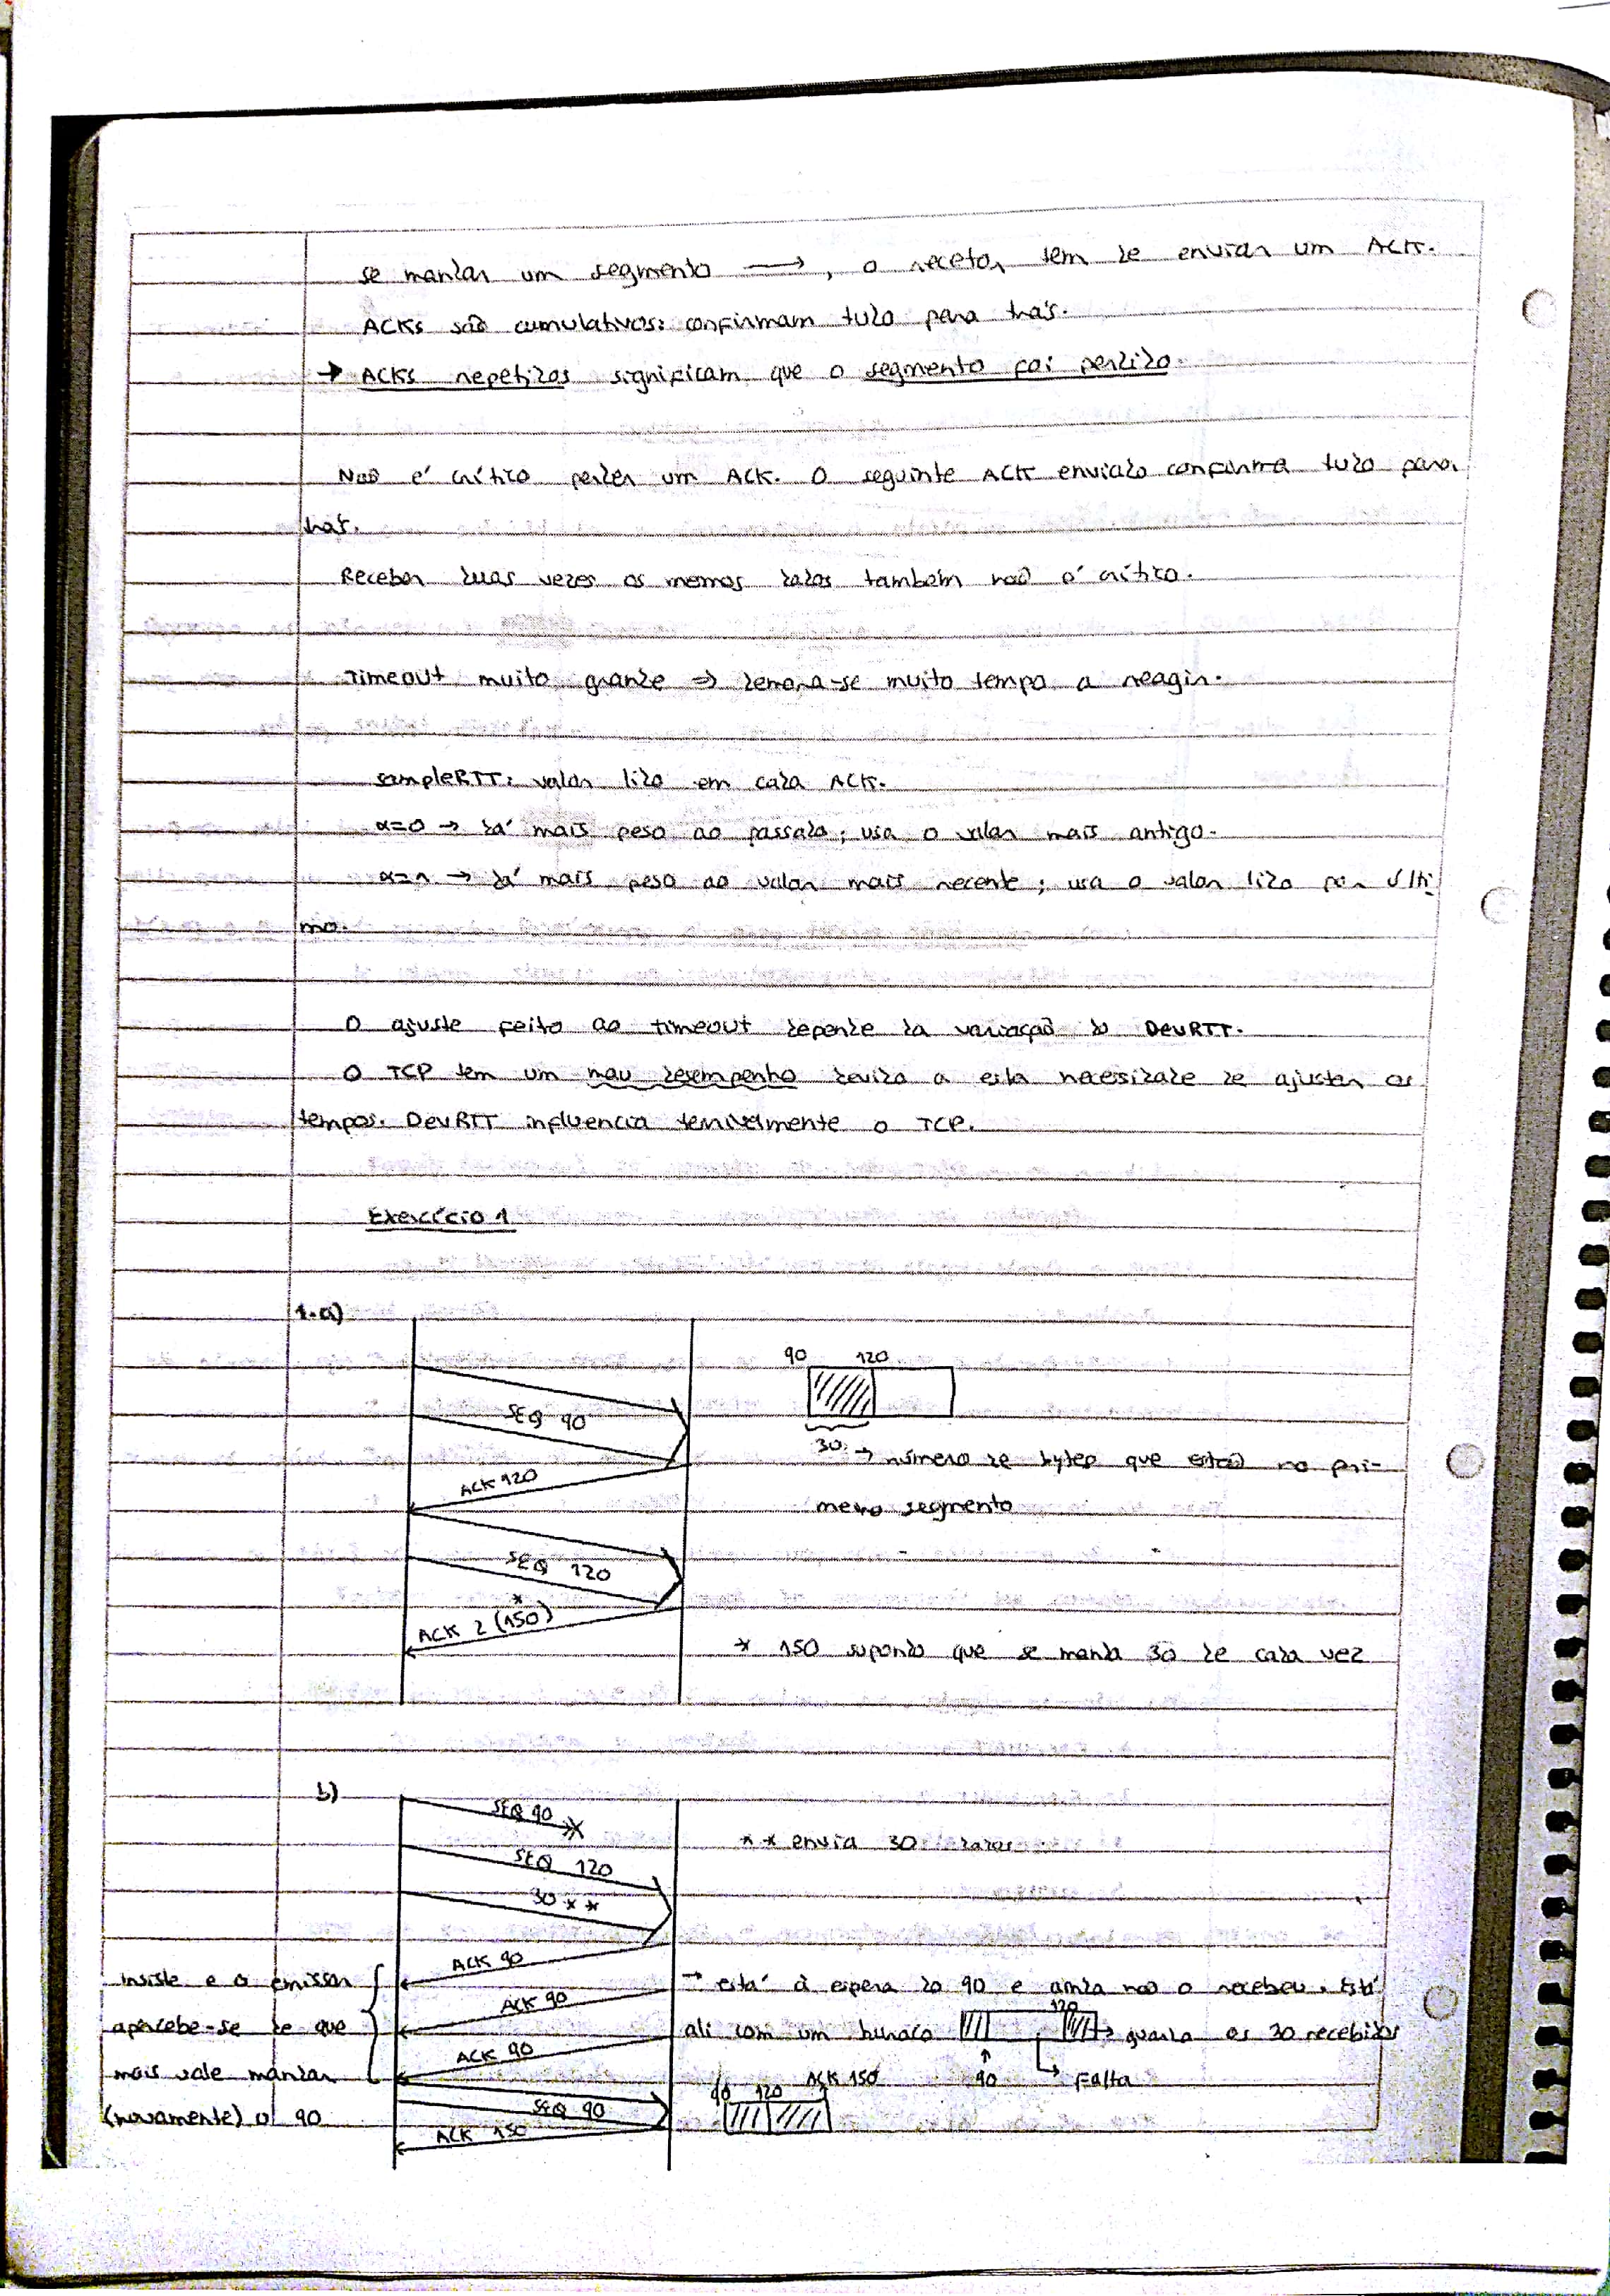 se mandar um segmento ⟶, o recetor tem de enviar um ACK.
ACKs são cumulativos: confirmam tudo para trás.
→ ACKs repetidos significam que o segmento foi perdido.
Não é crítico perder um ACK. O seguinte ACK enviado confirma tudo para
trás.
Receber duas vezes os memos dados também não é crítico.
Timeout muito grande ⇒ demora-se muito tempo a reagir.
sampleRTT: valor lido em cada ACK.
α=0 → dá mais peso ao passado; usa o valor mais antigo.
α=1 → dá mais peso ao valor mais recente; usa o valor lido por últi
mo.
O ajuste feito ao timeout depende da variação do DevRTT.
O TCP tem um mau desempenho devido a esta necessidade de ajustar os
tempos. DevRTT influencia terrivelmente o TCP.
Exercício 1
1.a)
90 120
SEQ 90
30 → número de bytes que estão no pri-
meiro segmento
ACK 120
SEQ 120
*
ACK 2 (150)
* 150 supondo que se manda 30 de cada vez
b)
SEQ 90
** envia 30 dados
SEQ 120
30 **
ACK 90
insiste e o emissor
apercebe-se de que
mais vale mandar
(novamente) o 90
→ está à espera do 90 e ainda não o recebeu. Está
ACK 90
ali com um buraco
120
→ guarda os 30 recebidos
ACK 90
90
Falta
90 120 ACK 150
SEQ 90
ACK 150